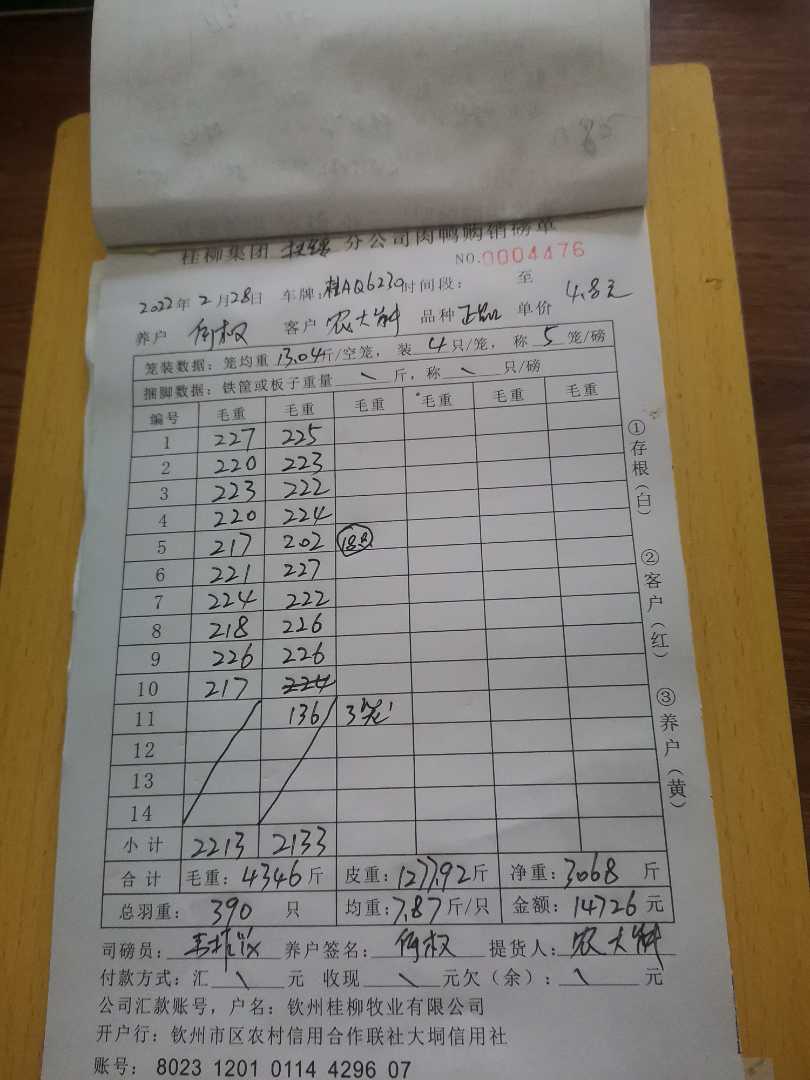 桂柳集团 分公司肉鸭购销磅单
NO.0004476
2022年2月28日 车牌:桂AQ6239 时间段: 至
养户 何权 客户 农大科 品种 正品 单价 4.8元
笼装数据: 笼均重 13.04斤/空笼, 装 4 只/笼, 称 5 笼/磅
捆脚数据: 铁筐或板子重量 \ 斤, 称 \ 只/磅
编号 毛重 毛重 毛重 毛重 毛重 毛重
1 227 225
2 220 223
3 223 222
4 220 224
5 217 202 188
6 221 227
7 224 222
8 218 226
9 226 226
10 217 224
11 136 3笼
12
13
14
小计 2213 2133
合计 毛重: 4346斤 皮重: 1277.92斤 净重: 3068 斤
总羽重: 390 只 均重: 7.87斤/只 金额: 14726元
司磅员: 养户签名: 何权 提货人: 农大科
付款方式: 汇 \ 元 收现 \ 元欠(余): \ 元
公司汇款账号, 户名: 钦州桂柳牧业有限公司
开户行: 钦州市区农村信用合作联社大垌信用社
账号: 8023 1201 0114 4296 07
①存根(白) ②客户(红) ③养户(黄)